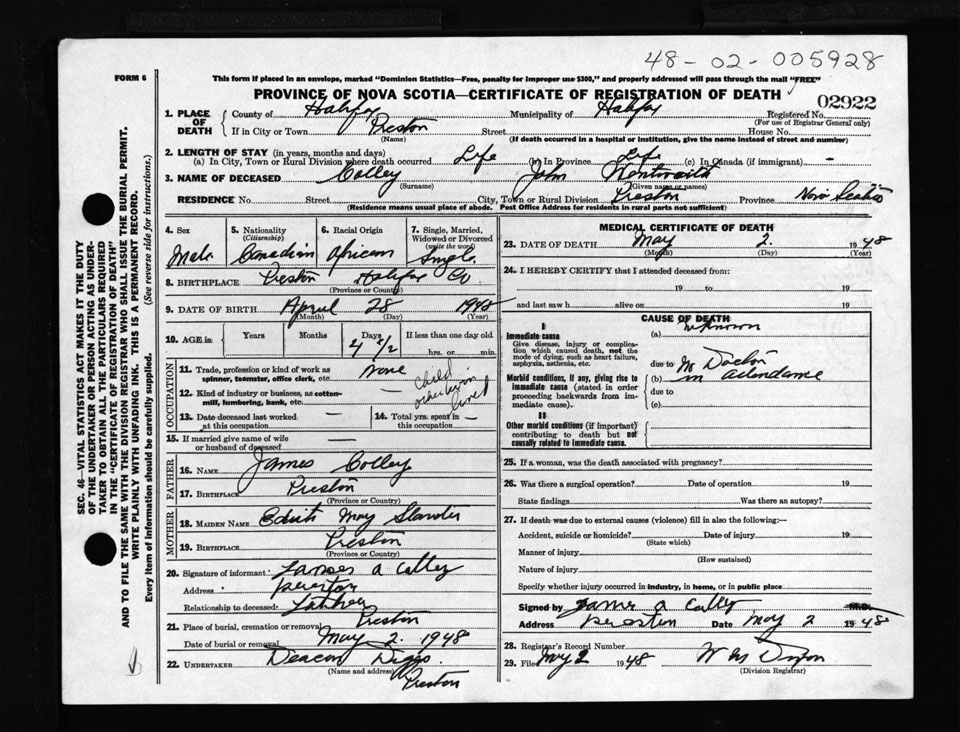 48-02-005928
FORM 6
This form if placed in an envelope, marked "Dominion Statistics—Free, penalty for improper use $300," and properly addressed will pass through the mail "FREE"
PROVINCE OF NOVA SCOTIA—CERTIFICATE OF REGISTRATION OF DEATH
02922
1. PLACE OF DEATH County of Halifax Municipality of Halifax Registered No.
(For use of Registrar General only)
If in City or Town Preston Street House No.
(Name) (If death occurred in a hospital or institution, give the name instead of street and number)
2. LENGTH OF STAY (in years, months and days)
(a) In City, Town or Rural Division where death occurred Life (b) In Province Life (c) In Canada (if immigrant) -
3. NAME OF DECEASED Colley John Wentworth
(Surname) (Given name or names)
RESIDENCE No. Street City, Town or Rural Division Preston Province Nova Scotia
(Residence means usual place of abode. Post Office Address for residents in rural parts not sufficient)
4. Sex 5. Nationality (Citizenship) 6. Racial Origin 7. Single, Married, Widowed or Divorced (write the word)
Male Canadian African Single
8. BIRTHPLACE Preston Halifax Co
(Province or Country)
9. DATE OF BIRTH April 28 1948
(Month) (Day) (Year)
10. AGE is Years Months Days If less than one day old
4 1/2 hrs. or min.
OCCUPATION
11. Trade, profession or kind of work as spinner, teamster, office clerk, etc. none
12. Kind of industry or business, as cotton-mill, lumbering, bank, etc.
Child
lived
13. Date deceased last worked at this occupation —
14. Total yrs. spent in this occupation —
15. If married give name of wife or husband of deceased —
FATHER
16. NAME James Colley
17. BIRTHPLACE Preston
(Province or Country)
MOTHER
18. MAIDEN NAME May
19. BIRTHPLACE Preston
(Province or Country)
20. Signature of informant James A Colley
Address Preston
Relationship to deceased Father
21. Place of burial, cremation or removal Preston
Date of burial or removal May 2. 1948
22. UNDERTAKER Deacon Diggs.
(Name and address) Preston
MEDICAL CERTIFICATE OF DEATH
23. DATE OF DEATH May 2. 1948
(Month) (Day) (Year)
24. I HEREBY CERTIFY that I attended deceased from:
19 to 19
and last saw h alive on 19
CAUSE OF DEATH
I
Immediate cause (a) unknown
Give disease, injury or complication which caused death, not the mode of dying, such as heart failure, asphyxia, asthenia, etc.
due to No Doctor
Morbid conditions, if any, giving rise to immediate cause (stated in order proceeding backwards from immediate cause).
(b) in attendance
due to
(c)
II
Other morbid conditions (if important) contributing to death but not causally related to immediate cause.
25. If a woman, was the death associated with pregnancy?
26. Was there a surgical operation? Date of operation 19
State findings Was there an autopsy?
27. If death was due to external causes (violence) fill in also the following:—
Accident, suicide or homicide? Date of injury 19
(State which)
Manner of injury
(How sustained)
Nature of injury
Specify whether injury occurred in industry, in home, or in public place
Signed by James A Colley M.D.
Address Preston Date May 2 1948
28. Registrar's Record Number
29. Filed May 2 1948
(Division Registrar)
SEC. 46—VITAL STATISTICS ACT MAKES IT THE DUTY
OF THE UNDERTAKER OR PERSON ACTING AS UNDER-
TAKER TO OBTAIN ALL THE PARTICULARS REQUIRED
IN THE "CERTIFICATE OF REGISTRATION OF DEATH"
AND TO FILE THE SAME WITH THE DIVISION REGISTRAR WHO SHALL ISSUE THE BURIAL PERMIT.
WRITE PLAINLY WITH UNFADING INK. THIS IS A PERMANENT RECORD.
Every item of information should be carefully supplied. (See reverse side for instructions.)